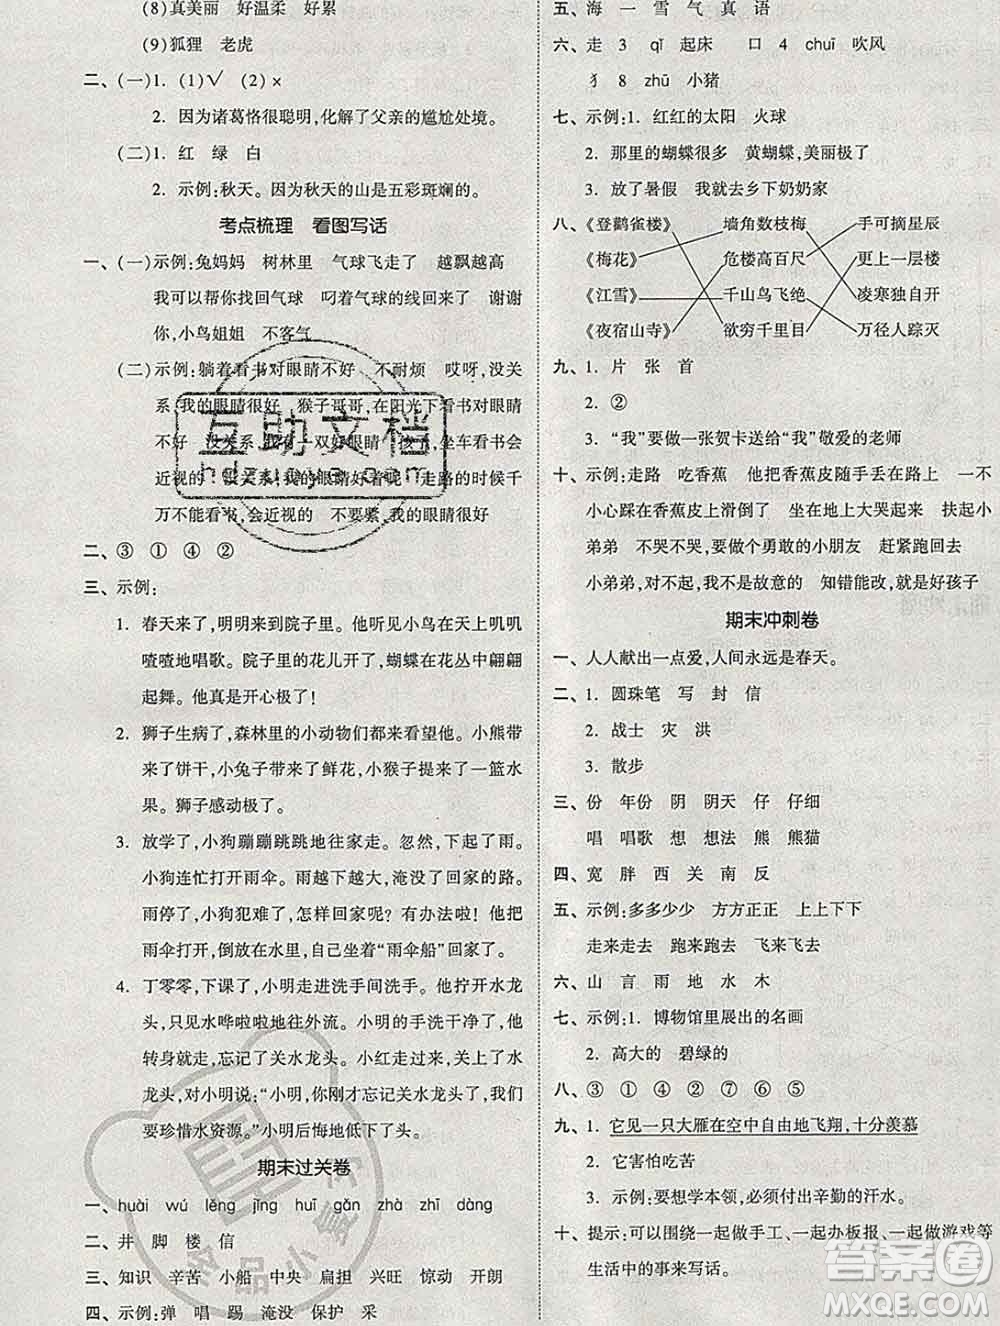 (8)真美丽 好温柔 好累
(9)狐狸 老虎
二、(一)1. (1)√ (2)×
2. 因为诸葛恪很聪明,化解了父亲的尴尬处境。
(二)1. 红 绿 白
2. 示例:秋天。因为秋天的山是五彩斑斓的。
考点梳理 看图写话
一、(一)示例:兔妈妈 树林里 气球飞走了 越飘越高
我可以帮你找回气球 叼着气球的线回来了 谢谢
你,小鸟姐姐 不客气
(二)示例:躺着看书对眼睛不好 不耐烦 哎呀,没关
系,我的眼睛很好 猴子哥哥,在阳光下看书对眼睛
不好 没关系,我有一双好眼睛 孩子,坐车看书会
近视的 没关系,我的眼睛好着呢 走路的时候千
万不能看书,会近视的 不要紧,我的眼睛很好
二、③ ① ④ ②
三、示例:
1. 春天来了,明明来到院子里。他听见小鸟在叽叽
喳喳地唱歌。院子里的花儿开了,蝴蝶在花丛中翩翩
起舞。他真是开心极了!
2. 狮子生病了,森林里的小动物们都来看望他。小熊带
来了饼干,小兔子带来了鲜花,小猴子带来了一篮水
果。狮子感动极了。
3. 放学了,小狗蹦蹦跳跳地往家走。忽然,下起了雨。
小狗连忙打开雨伞。雨越下越大,淹没了回家的路。
雨停了,小狗犯难了,怎样回家呢?有办法啦!他把
雨伞打开,倒放在水里,自己坐着“雨伞船”回家了。
4. 丁零零,下课了,小明走进洗手间洗手。他拧开水龙
头,只见水哗啦啦地往外流。小明的手洗干净了,他
转身就走,忘记了关水龙头。小红赶忙关上了水
龙头,对小明说:“小明,你刚才忘记关水龙头了,我们
要珍惜水资源。”小明后悔地低下了头。
期末过关卷
一、huài wú lěng jīng huī gǎn zhà zhī dàng
二、井 脚 楼 信
三、知识 辛苦 小船 中央 扁担 兴旺 惊动 开朗
四、示例:弹 唱 踢 淹没 保护 采
五、海 一 雪 气 真 语
六、走 3 qǐ 起床 口 4 chuī 吹风
犭 8 zhū 小猪
七、示例:1. 红红的太阳 火球
2. 那里的蝴蝶很多 黄蝴蝶,美丽极了
3. 放了暑假 我就去乡下奶奶家
八、《登鹳雀楼》 墙角数枝梅 手可摘星辰
《梅花》 危楼高百尺 更上一层楼
《江雪》 千山鸟飞绝 凌寒独自开
《夜宿山寺》 欲穷千里目 万径人踪灭
九、1. 片 张 首
2. ②
3. “我”要做一张贺卡送给“我”敬爱的老师
十、示例:走路 吃香蕉 他把香蕉皮随手丢在路上 一不
小心踩在香蕉皮上滑倒了 坐在地上大哭起来 扶起小
弟弟 不哭不哭,要做个勇敢的小朋友 赶紧跑过来
小弟弟,对不起,我不是故意的 知错能改,就是好孩子
期末冲刺卷
一、人人献出一点爱,人间永远是春天。
二、1. 圆珠笔 写 封 信
2. 战士 灾 洪
3. 散步
三、份 年份 阴 阴天 仔 仔细
唱 唱歌 想 想法 熊 熊猫
四、宽 胖 西 关 南 反
五、示例:多多少少 方方正正 上上下下
走来走去 跑来跑去 飞来飞去
六、山 言 雨 地 水 木
七、示例:1. 博物馆里展出的名画
2. 高大的 碧绿的
八、③ ① ④ ② ⑦ ⑥ ⑤
九、1. 它见一只大雁在空中自由地飞翔,十分羡慕
2. 它害怕吃苦
3. 示例:要想学本领,必须付出辛勤的汗水。
十、提示:可以围绕一起做手工、一起办板报、一起做游戏等
生活中的事来写话。
互助文档
答案圈
MXQE.COM